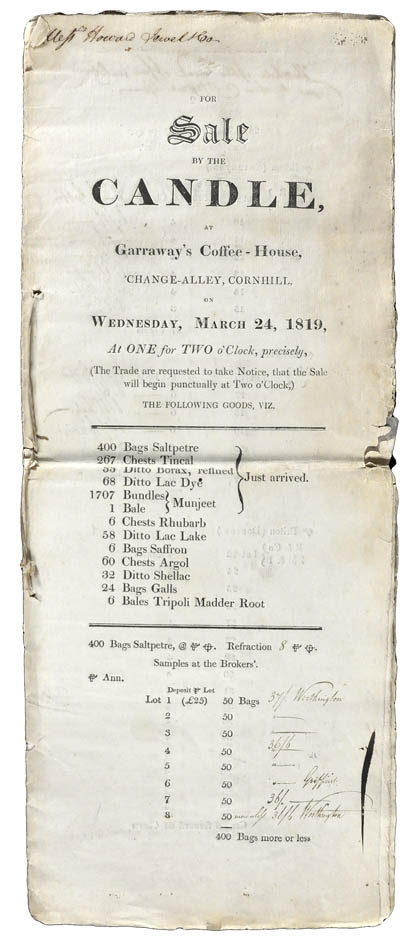 Messrs Howard Jewel & Co
FOR
Sale
BY THE
CANDLE,
AT
Garraway's Coffee-House,
'CHANGE-ALLEY, CORNHILL,
ON
WEDNESDAY, MARCH 24, 1819,
At ONE for TWO o'Clock, precisely,
(The Trade are requested to take Notice, that the Sale
will begin punctually at Two o'Clock,)
THE FOLLOWING GOODS, VIZ.
400 Bags Saltpetre
267 Chests Tincal
55 Ditto Borax, refined
68 Ditto Lac Dye
Just arrived.
1707 Bundles
1 Bale
Munjeet
6 Chests Rhubarb
58 Ditto Lac Lake
6 Bags Saffron
60 Chests Argol
32 Ditto Shellac
24 Bags Galls
6 Bales Tripoli Madder Root
400 Bags Saltpetre, @ ⅌ . Refraction 8 ⅌ .
Samples at the Brokers'.
⅌ Ann.
Deposit ⅌ Lot
Lot 1 (£25) 50 Bags 37/- Worthington
2 50
3 50
4 50 36/6
5 50
6 50 Griffin
7 50 36/-
8 50 36/6 Worthington
400 Bags more or less